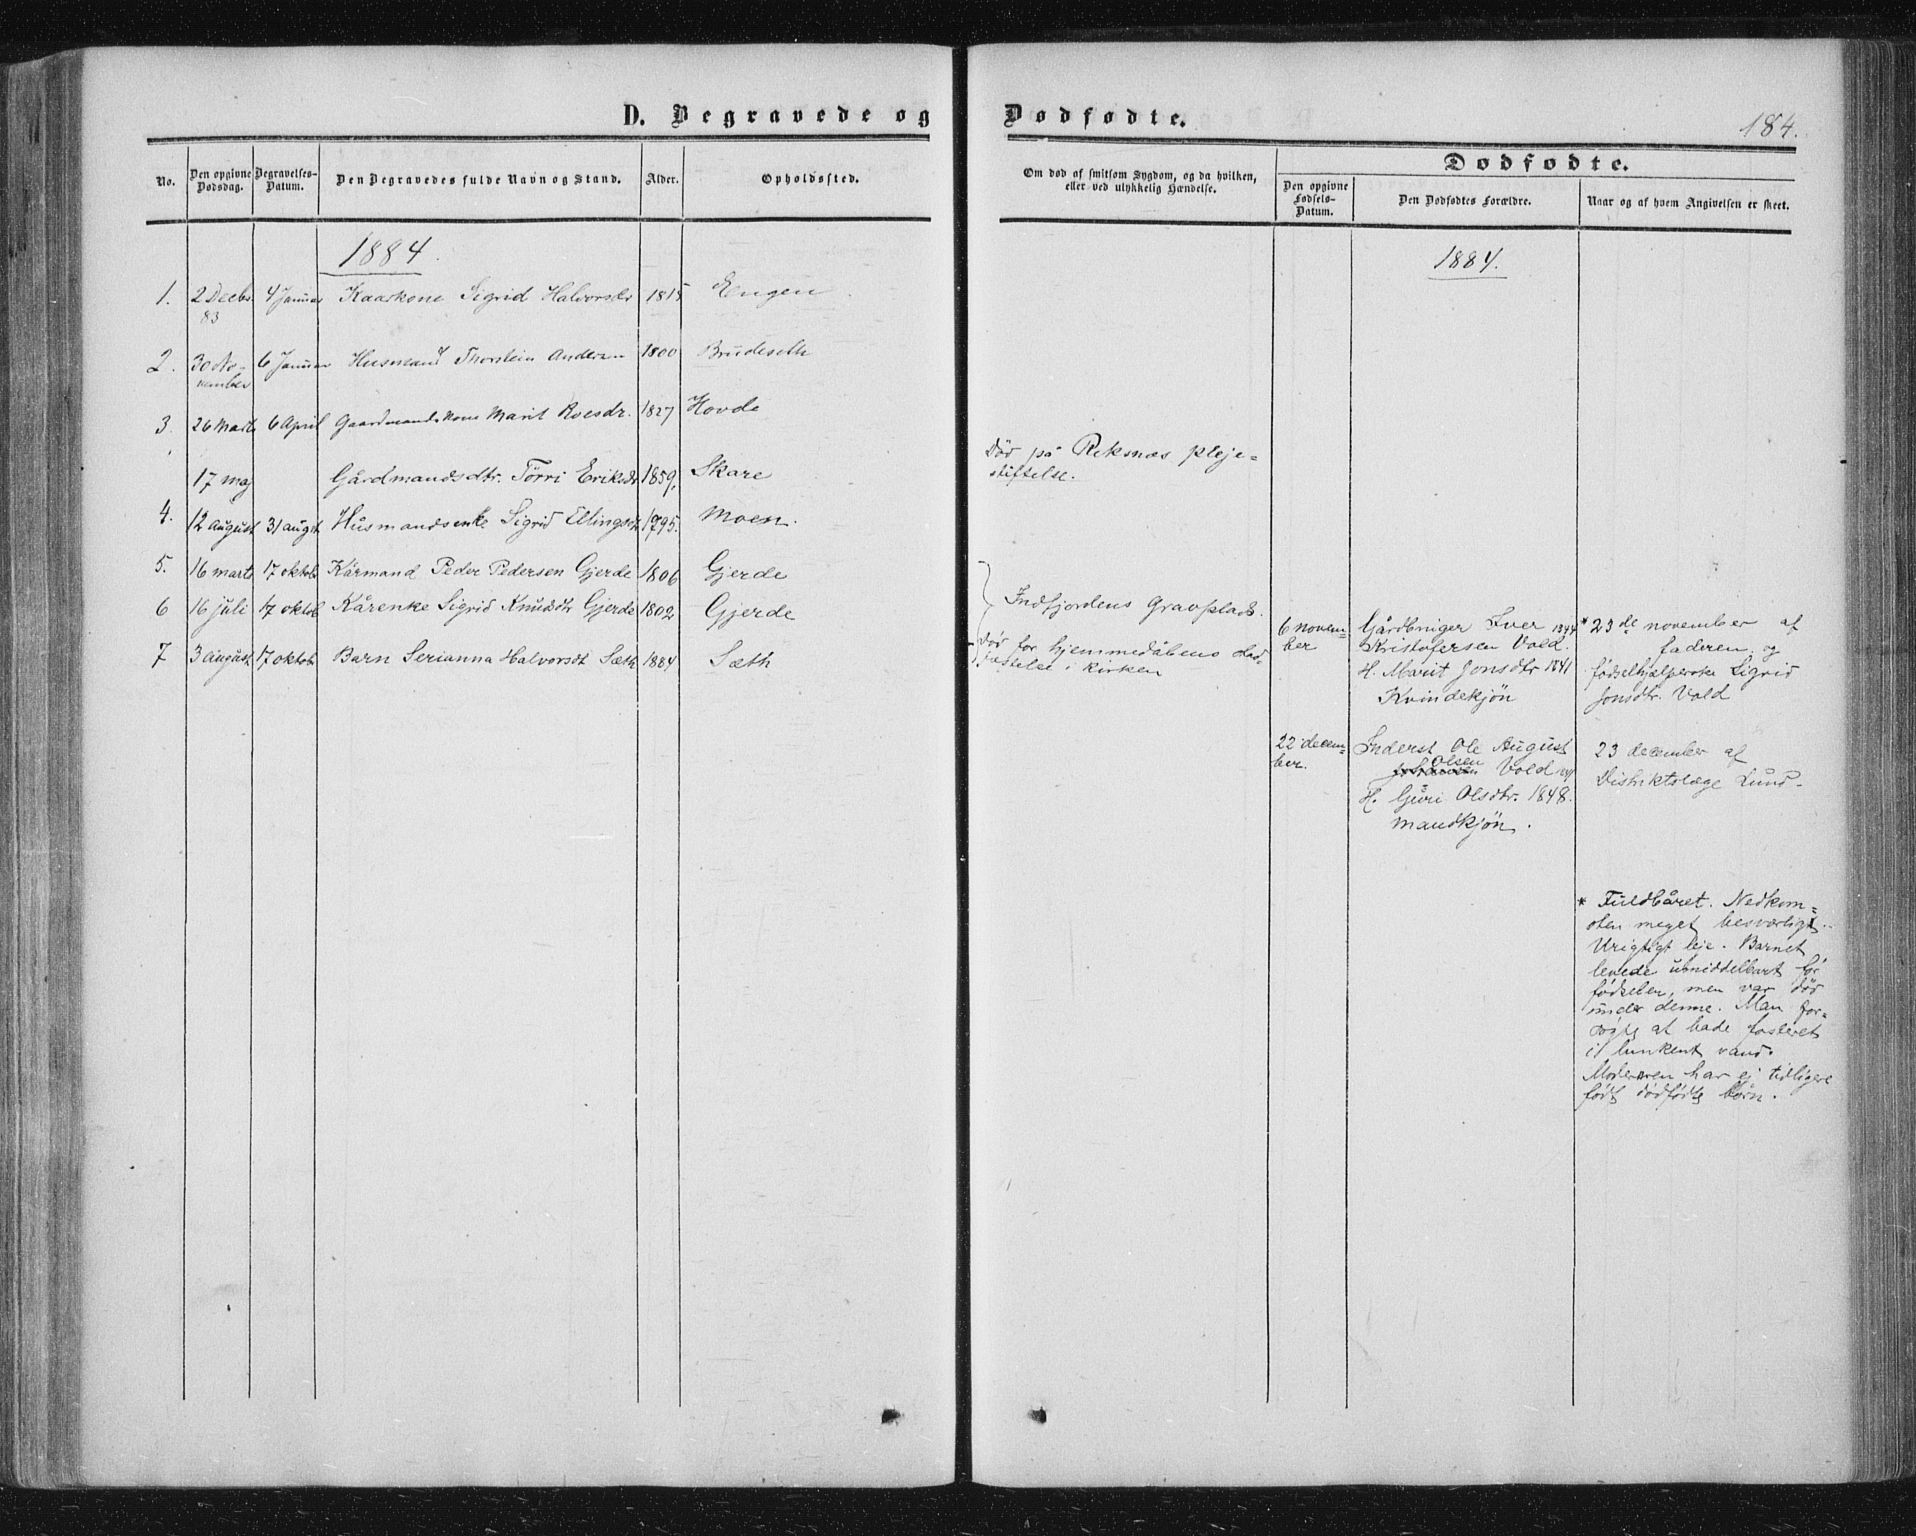 D. Begravede og Dødfødte.
184.
No.
Den opgivne Dødsdag.
Begravelses-Datum.
Den Begravedes fulde Navn og Stand.
Alder.
Opholdssted.
Om død af smitsom Sygdom, og da hvilken,
eller ved ulykkelig Hændelse.
Dødfødte.
Den opgivne Fødsels-Datum.
Den Dødfødtes Forældre.
Naar og af hvem Angivelsen er skeet.
1884.
1. 2 Decbr 83 4 Januar Kaarkone Sigrid Halvorsdr 1815 Engen
2. 30 November 6 Januar Husmand Thorstein Andersen 1800 Brudeseth
3. 26 Marts 6 April Gaardmandskone Marit Roesdr. 1827 Hovde
17 maj Gårdmandsdtr. Törri Eriksdr 1859. Skare
4. 12 august 31 augst Husmandsenke Sigrid Ellingsdtr 1795. Moen.
5. 16 marts 17 oktob Kårmand Peder Pedersen Gjerde 1806 Gjerde
6 16 juli 17 oktob Kårenke Sigrid Knudsdtr Gjerde 1802 Gjerde
7 3 august 17 oktob Barn Serianna Halvorsdt Sæth 1884 Sæth
Död på Reknæs pleje=
stiftelse.
Indfjordens Gravplads.
Död før hjemmedåbens
i kirken
1884.
6 novem=
ber
Gårdbruger Iver 1844
Kristofersen Vold.
H. Marit Jonsdtr 1841
Kvindekjön
* 23de november af
faderen og
fødselhjælperske Sigrid
Jonsdtr. Vold
22 decem=
ber.
Inderst Ole August
Olsen Vold
H. Guri Olsdtr. 1848.
mandkjön.
23 december af
Distriktslæge Lund.
* Fuldbåret. Nedkom=
sten meget besværligt.
Urigtigt leje. Barnet
levede umiddelbart før
fødselen, men var död
under denne. Man for=
søgte at bade fosteret
i lunkent vand.
Moderen har ej tidligere
født dødfødte børn.